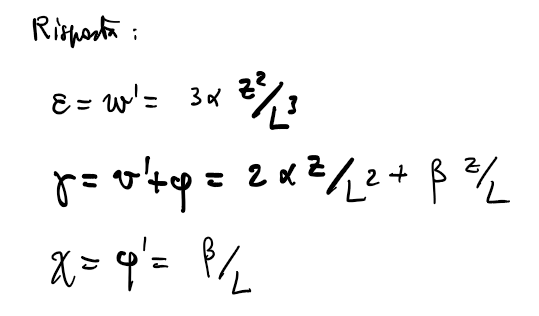 Risposta:
ε = w' = 3α z²/L³
γ = v'+φ = 2 α z/L² + β z/L
χ = φ' = β/L